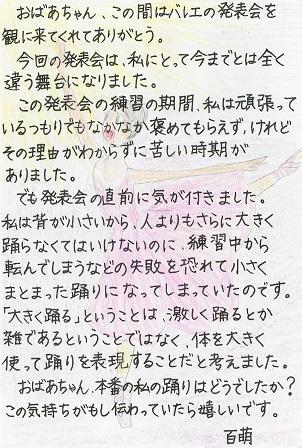 おばあちゃん、この間はバレエの発表会を
観に来てくれてありがとう。
今回の発表会は、私にとって今までとは全く
違う舞台になりました。
この発表会の練習の期間、私は頑張って
いるつもりでもなかなか褒めてもらえず、けれど
その理由がわからずに苦しい時期が
ありました。
でも発表会の直前に気が付きました。
私は背が小さいから、人よりもさらに大きく
踊らなくてはいけないのに、練習中から
転んでしまうなどの失敗を恐れて小さく
まとまった踊りになってしまっていたのです。
「大きく踊る」ということは、激しく踊るとか
雑であるということではなく、体を大きく
使って踊りを表現することだと考えました。
おばあちゃん、本番の私の踊りはどうでしたか?
この気持ちがもし伝わっていたら嬉しいです。
百萌